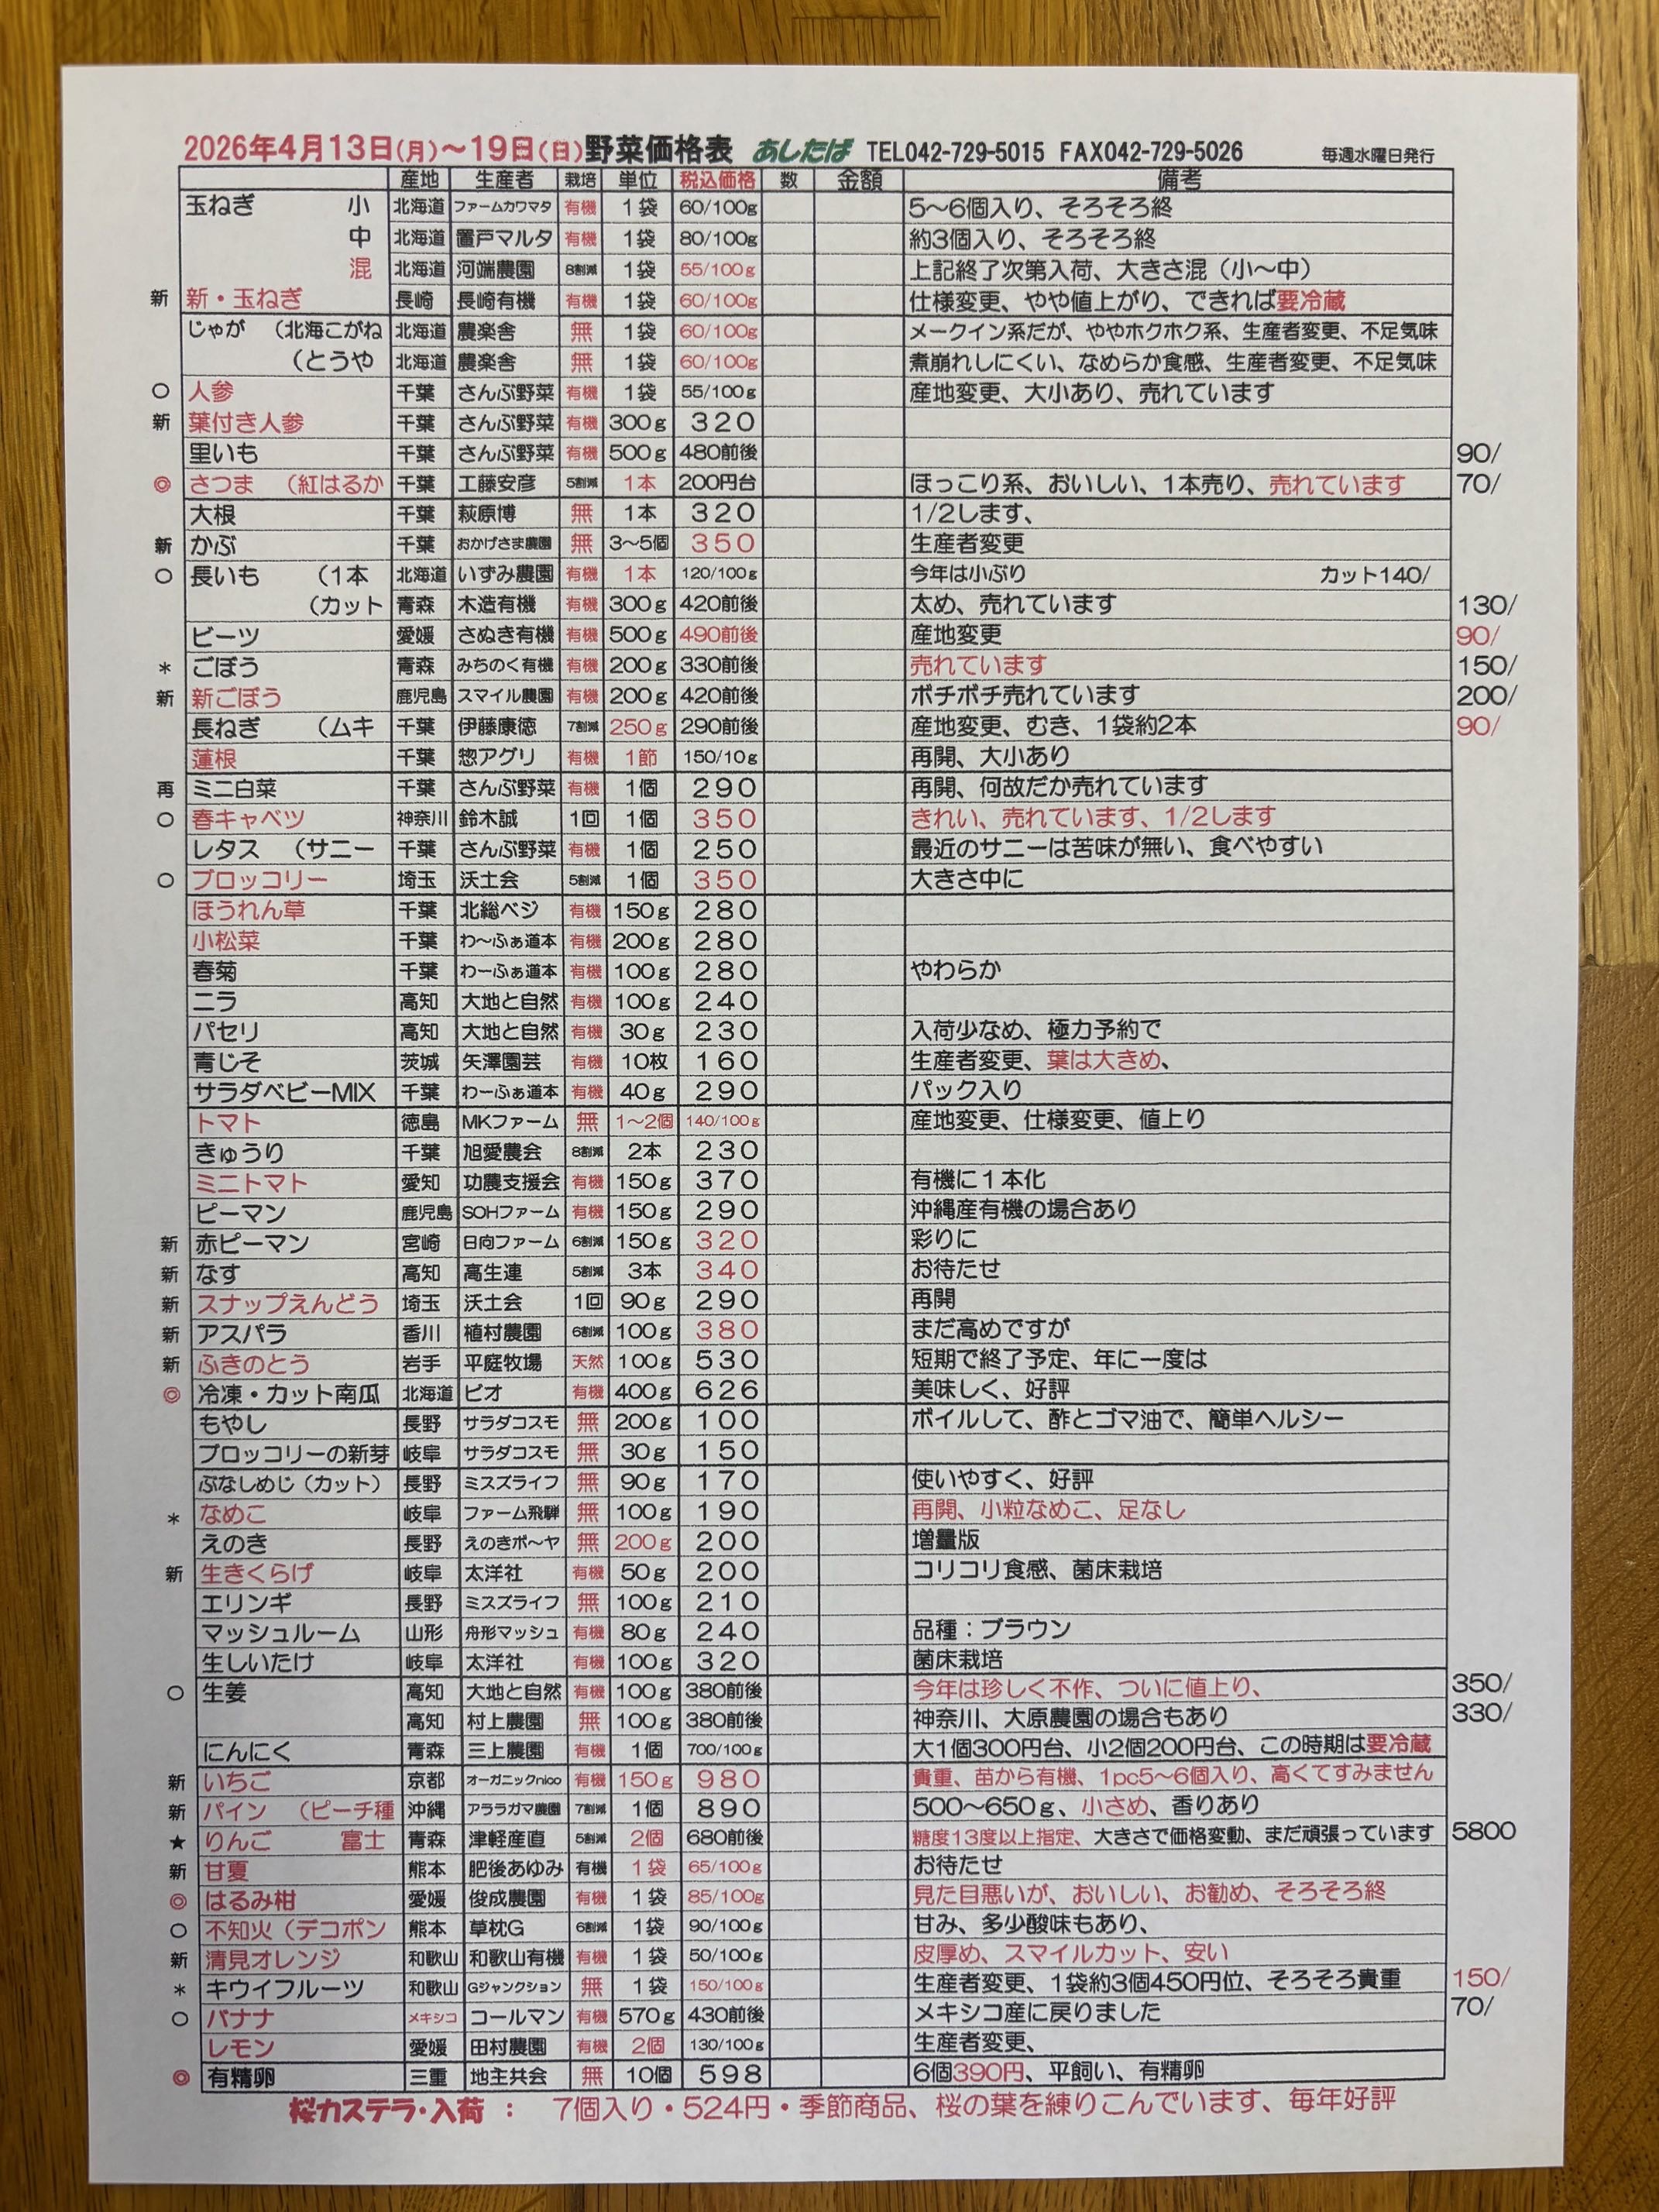 2026年4月13日(月)～19日(日)野菜価格表 あしたば TEL042-729-5015 FAX042-729-5026 毎週水曜日発行
産地 生産者 栽培 単位 税込価格 数 金額 備考
玉ねぎ 小 北海道 ファームカワマタ 有機 1袋 60/100g 5～6個入り、そろそろ終
中 北海道 置戸マルタ 有機 1袋 80/100g 約3個入り、そろそろ終
混 北海道 河端農園 8割減 1袋 55/100g 上記終了次第入荷、大きさ混（小～中）
新 新・玉ねぎ 長崎 長崎有機 有機 1袋 60/100g 仕様変更、やや値上がり、できれば要冷蔵
じゃが （北海こがね 北海道 農楽舎 無 1袋 60/100g メークイン系だが、ややホクホク系、生産者変更、不足気味
（とうや 北海道 農楽舎 無 1袋 60/100g 煮崩れしにくい、なめらか食感、生産者変更、不足気味
○ 人参 千葉 さんぶ野菜 有機 1袋 55/100g 産地変更、大小あり、売れています
新 葉付き人参 千葉 さんぶ野菜 有機 300g 320
里いも 千葉 さんぶ野菜 有機 500g 480前後 90/
◎ さつま （紅はるか 千葉 工藤安彦 5割減 1本 200円台 ほっこり系、おいしい、1本売り、売れています 70/
大根 千葉 萩原博 無 1本 320 1/2します、
新 かぶ 千葉 おかげさま農園 無 3～5個 350 生産者変更
○ 長いも （1本 北海道 いずみ農園 有機 1本 120/100g 今年は小ぶり カット140/
（カット 青森 木造有機 有機 300g 420前後 太め、売れています 130/
ビーツ 愛媛 さぬき有機 有機 500g 490前後 産地変更 90/
* ごぼう 青森 みちのく有機 有機 200g 330前後 売れています 150/
新 新ごぼう 鹿児島 スマイル農園 有機 200g 420前後 ボチボチ売れています 200/
長ねぎ （ムキ 千葉 伊藤康徳 7割減 250g 290前後 産地変更、むき、1袋約2本 90/
蓮根 千葉 惣アグリ 有機 1節 150/10g 再開、大小あり
再 ミニ白菜 千葉 さんぶ野菜 有機 1個 290 再開、何故だか売れています
○ 春キャベツ 神奈川 鈴木誠 1回 1個 350 きれい、売れています、1/2します
レタス （サニー 千葉 さんぶ野菜 有機 1個 250 最近のサニーは苦味が無い、食べやすい
○ ブロッコリー 埼玉 沃土会 5割減 1個 350 大きさ中に
ほうれん草 千葉 北総ベジ 有機 150g 280
小松菜 千葉 わ～ふぁ道本 有機 200g 280
春菊 千葉 わーふぁ道本 有機 100g 280 やわらか
ニラ 高知 大地と自然 有機 100g 240
パセリ 高知 大地と自然 有機 30g 230 入荷少なめ、極力予約で
青じそ 茨城 矢澤園芸 有機 10枚 160 生産者変更、葉は大きめ、
サラダベビーMIX 千葉 わーふぁ道本 有機 40g 290 パック入り
トマト 徳島 MKファーム 無 1～2個 140/100g 産地変更、仕様変更、値上り
きゅうり 千葉 旭愛農会 8割減 2本 230
ミニトマト 愛知 功農支援会 有機 150g 370 有機に1本化
ピーマン 鹿児島 SOHファーム 有機 150g 290 沖縄産有機の場合あり
新 赤ピーマン 宮崎 日向ファーム 6割減 150g 320 彩りに
新 なす 高知 高生連 5割減 3本 340 お待たせ
新 スナップえんどう 埼玉 沃土会 1回 90g 290 再開
新 アスパラ 香川 植村農園 6割減 100g 380 まだ高めですが
新 ふきのとう 岩手 平庭牧場 天然 100g 530 短期で終了予定、年に一度は
◎ 冷凍・カット南瓜 北海道 ビオ 有機 400g 626 美味しく、好評
もやし 長野 サラダコスモ 無 200g 100 ボイルして、酢とゴマ油で、簡単ヘルシー
ブロッコリーの新芽 岐阜 サラダコスモ 無 30g 150
ぶなしめじ（カット） 長野 ミスズライフ 無 90g 170 使いやすく、好評
* なめこ 岐阜 ファーム飛騨 無 100g 190 再開、小粒なめこ、足なし
えのき 長野 えのきボ～ヤ 無 200g 200 増量版
新 生きくらげ 岐阜 太洋社 有機 50g 200 コリコリ食感、菌床栽培
エリンギ 長野 ミスズライフ 無 100g 210
マッシュルーム 山形 舟形マッシュ 有機 80g 240 品種：ブラウン
生しいたけ 岐阜 太洋社 有機 100g 320 菌床栽培
○ 生姜 高知 大地と自然 有機 100g 380前後 今年は珍しく不作、ついに値上り、 350/
高知 村上農園 無 100g 380前後 神奈川、大原農園の場合もあり 330/
にんにく 青森 三上農園 有機 1個 700/100g 大1個300円台、小2個200円台、この時期は要冷蔵
新 いちご 京都 オーガニックnico 有機 150g 980 貴重、苗から有機、1pc5～6個入り、高くてすみません
新 パイン （ピーチ種 沖縄 アララガマ農園 7割減 1個 890 500～650g、小さめ、香りあり
★ りんご 富士 青森 津軽産直 5割減 2個 680前後 糖度13度以上指定、大きさで価格変動、まだ頑張っています 5800
新 甘夏 熊本 肥後あゆみ 有機 1袋 65/100g お待たせ
◎ はるみ柑 愛媛 俊成農園 有機 1袋 85/100g 見た目悪いが、おいしい、お勧め、そろそろ終
○ 不知火（デコポン 熊本 草枕G 6割減 1袋 90/100g 甘み、多少酸味もあり、
新 清見オレンジ 和歌山 和歌山有機 有機 1袋 50/100g 皮厚め、スマイルカット、安い
* キウイフルーツ 和歌山 Gジャンクション 無 1袋 150/100g 生産者変更、1袋約3個450円位、そろそろ貴重 150/
○ バナナ メキシコ コールマン 有機 570g 430前後 メキシコ産に戻りました 70/
レモン 愛媛 田村農園 有機 2個 130/100g 生産者変更、
◎ 有精卵 三重 地主共会 無 10個 598 6個390円、平飼い、有精卵
桜カステラ・入荷 ： 7個入り・524円・季節商品、桜の葉を練りこんでいます、毎年好評